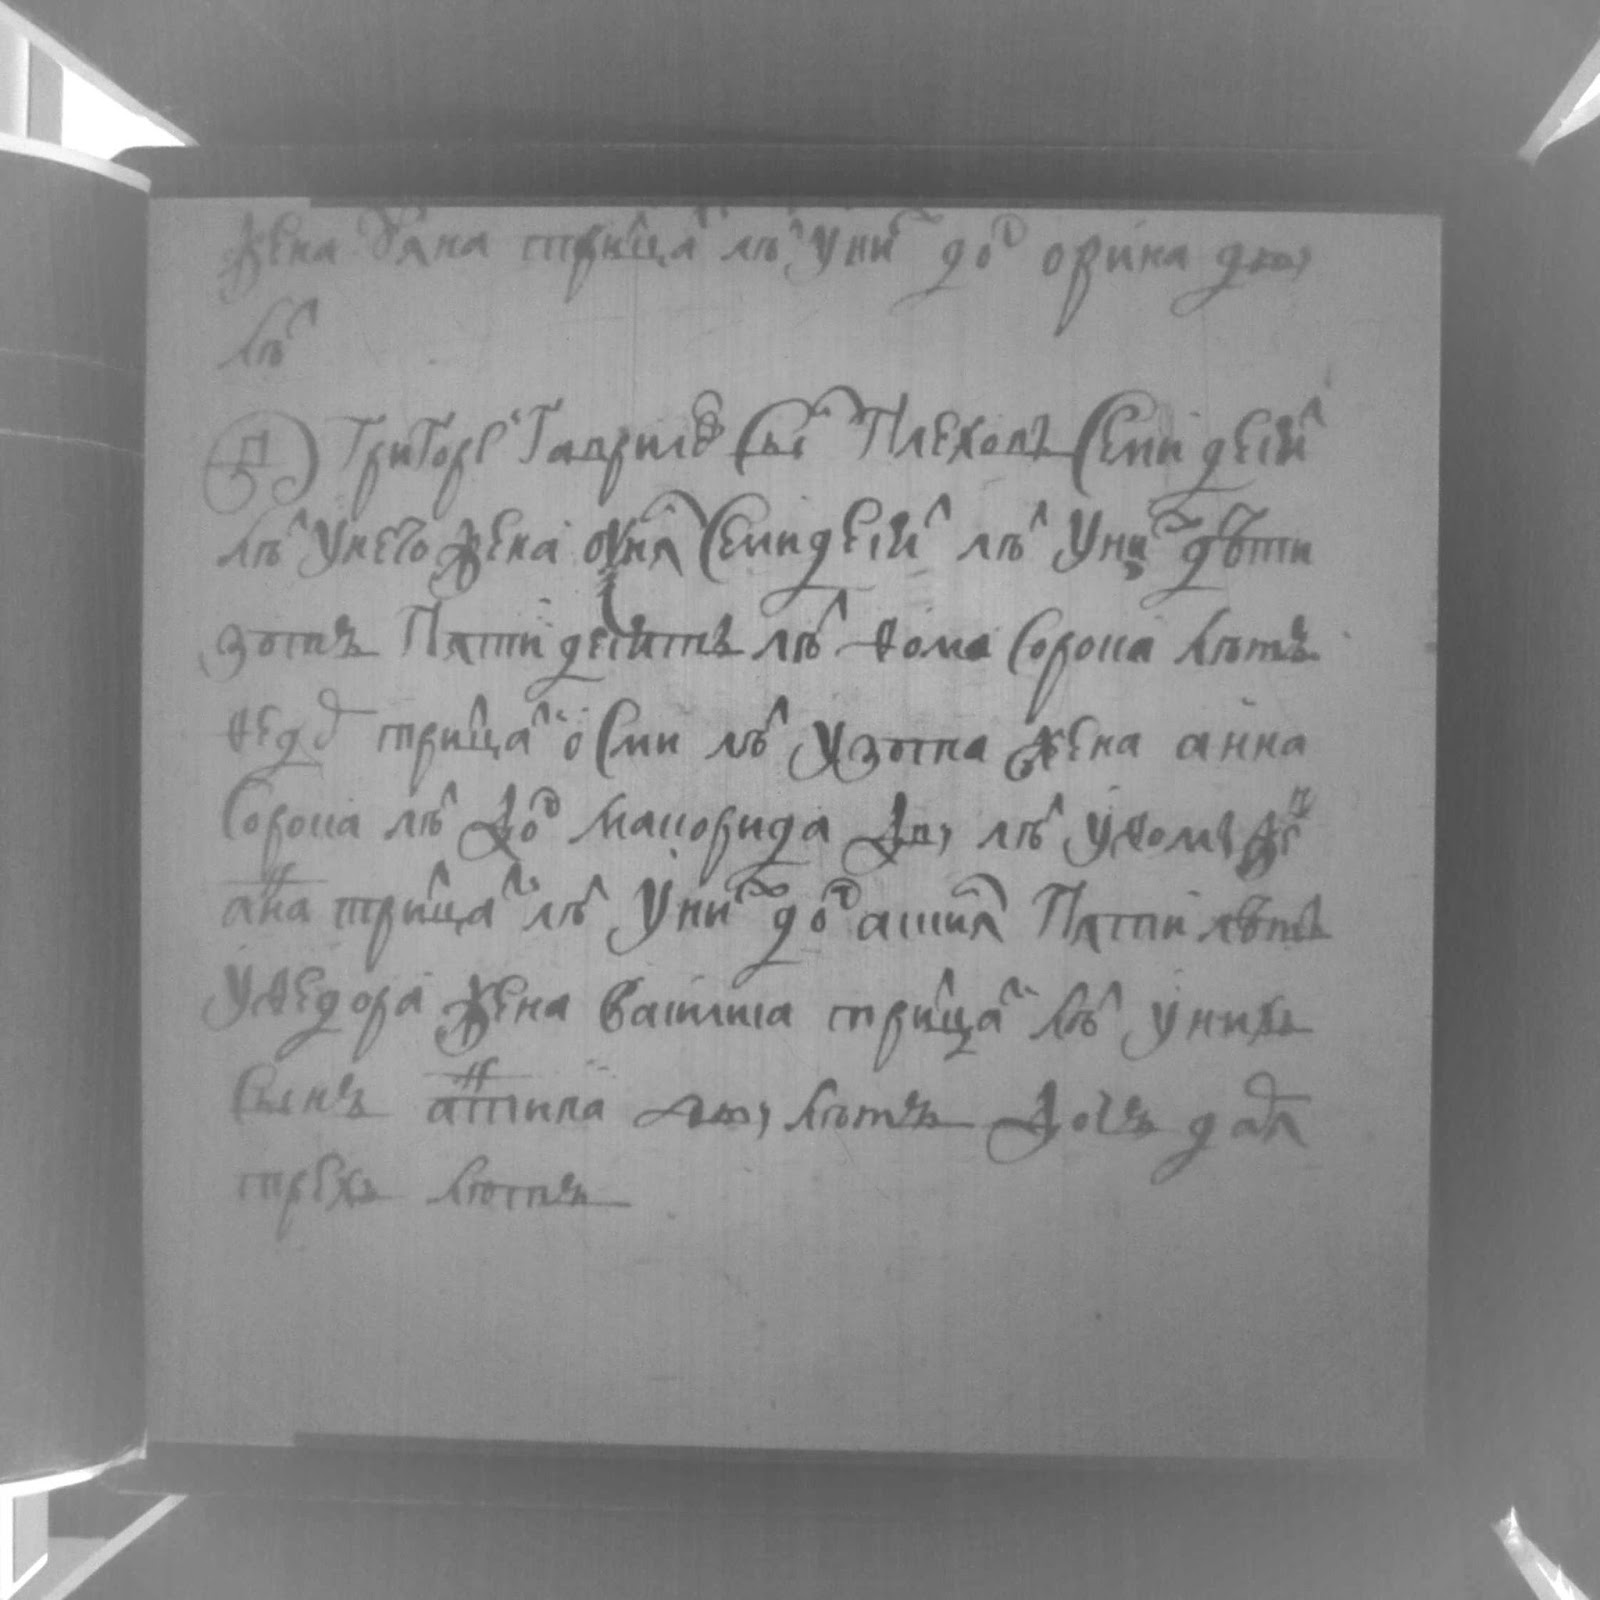 жена улiяна трицати лѣт у них доч орина дву
лѣт
Григореи Гаврилов сын Плеховъ семидесят
лѣт у него жена Семидесят лѣт у них дѣти
зотъ Пятидесятъ лѣт ѳома Сорока лѣтъ
ѳедор трицати осми лѣт у зота жена анна
Сорока лѣт доч макорида лѣт у ѳомы жена
анна трицати лѣт у них доч Пяти лѣтъ
у ѳедора жена василиса трицати лѣт у нихъ
сынъ лѣтъ дочь даря
трехъ лѣтъ